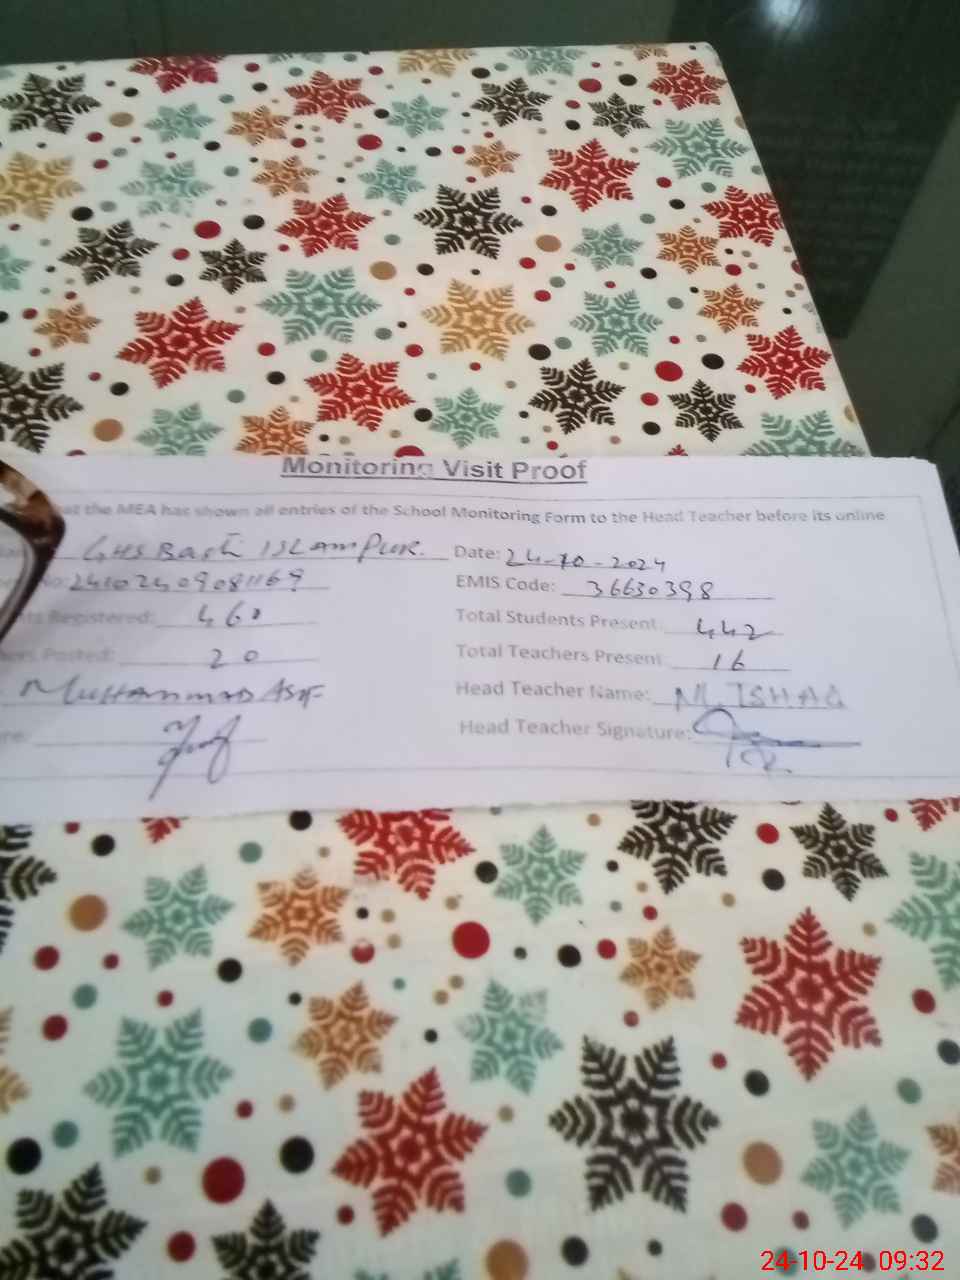 Monitoring Visit Proof
at the MEA has shown all entries of the School Monitoring Form to the Head Teacher before its online
GHS Basti ISLAMPUR. Date: 24-10-2024
No: 24102409081169 EMIS Code: 36630398
ts Registered: 460 Total Students Present: 442
ers Posted: 20 Total Teachers Present 16
MUHAMMAD ASIF Head Teacher Name: M. ISHAQ
re: Head Teacher Signature:
24-10-24 09:32